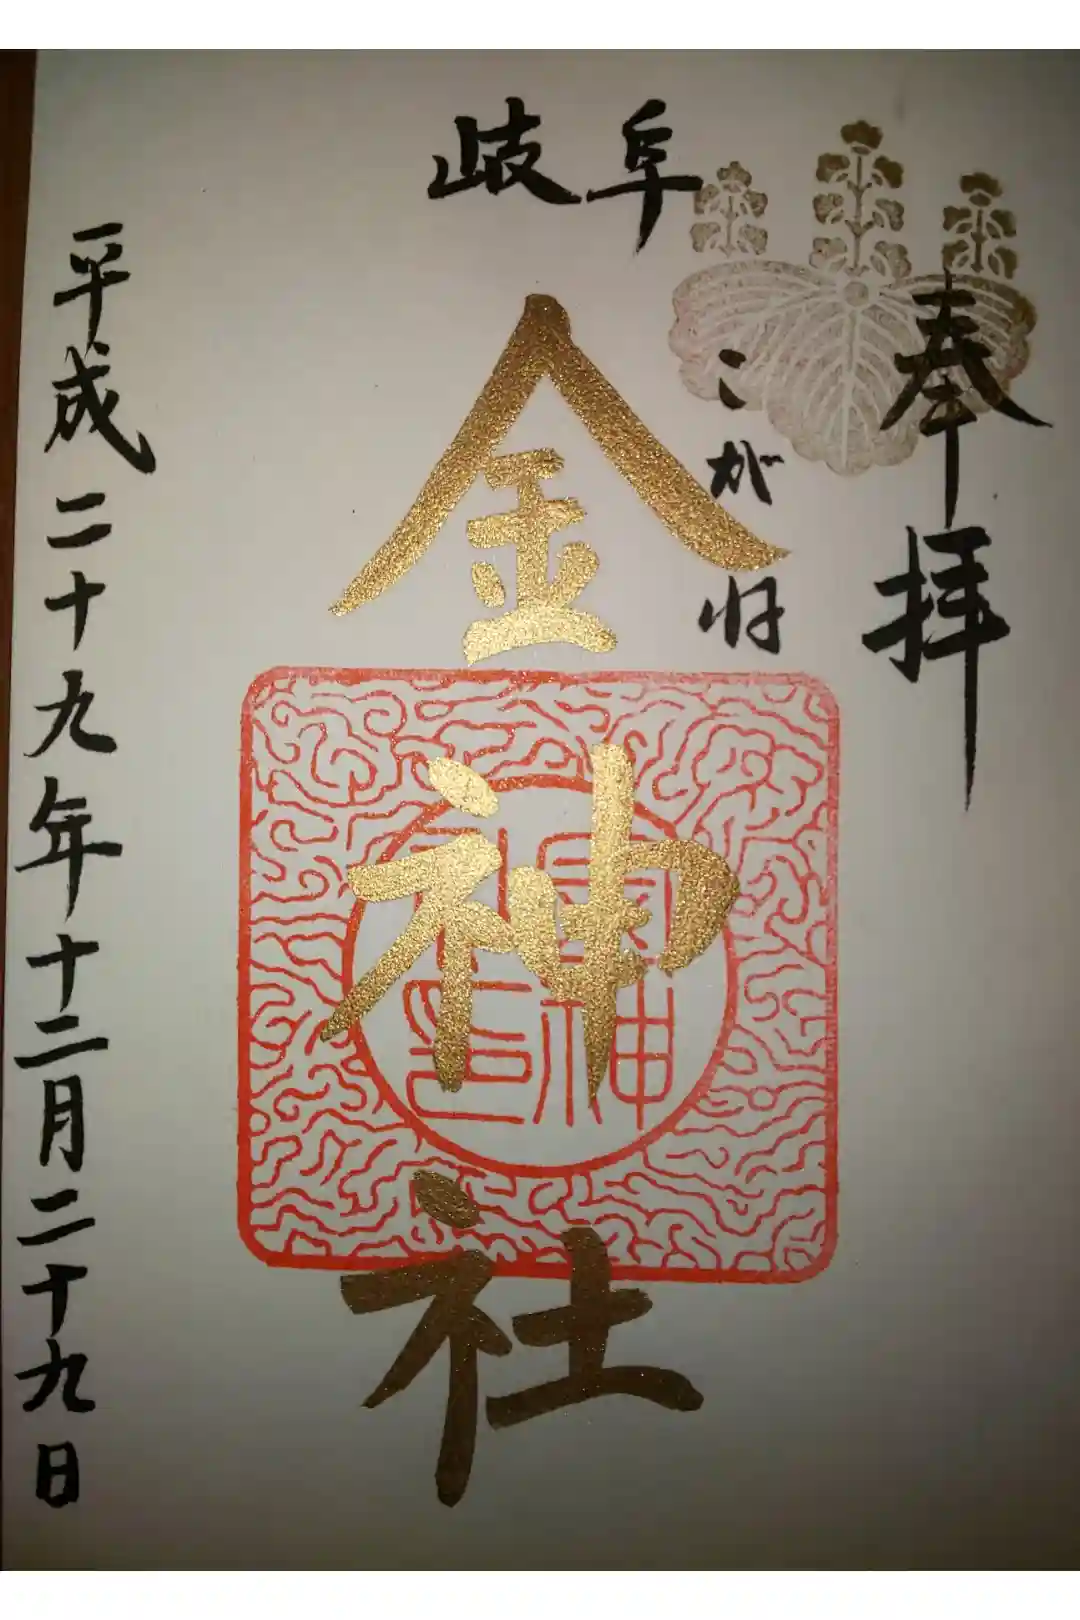 奉拝
岐阜
こがね
金神社
平成二十九年十二月二十九日